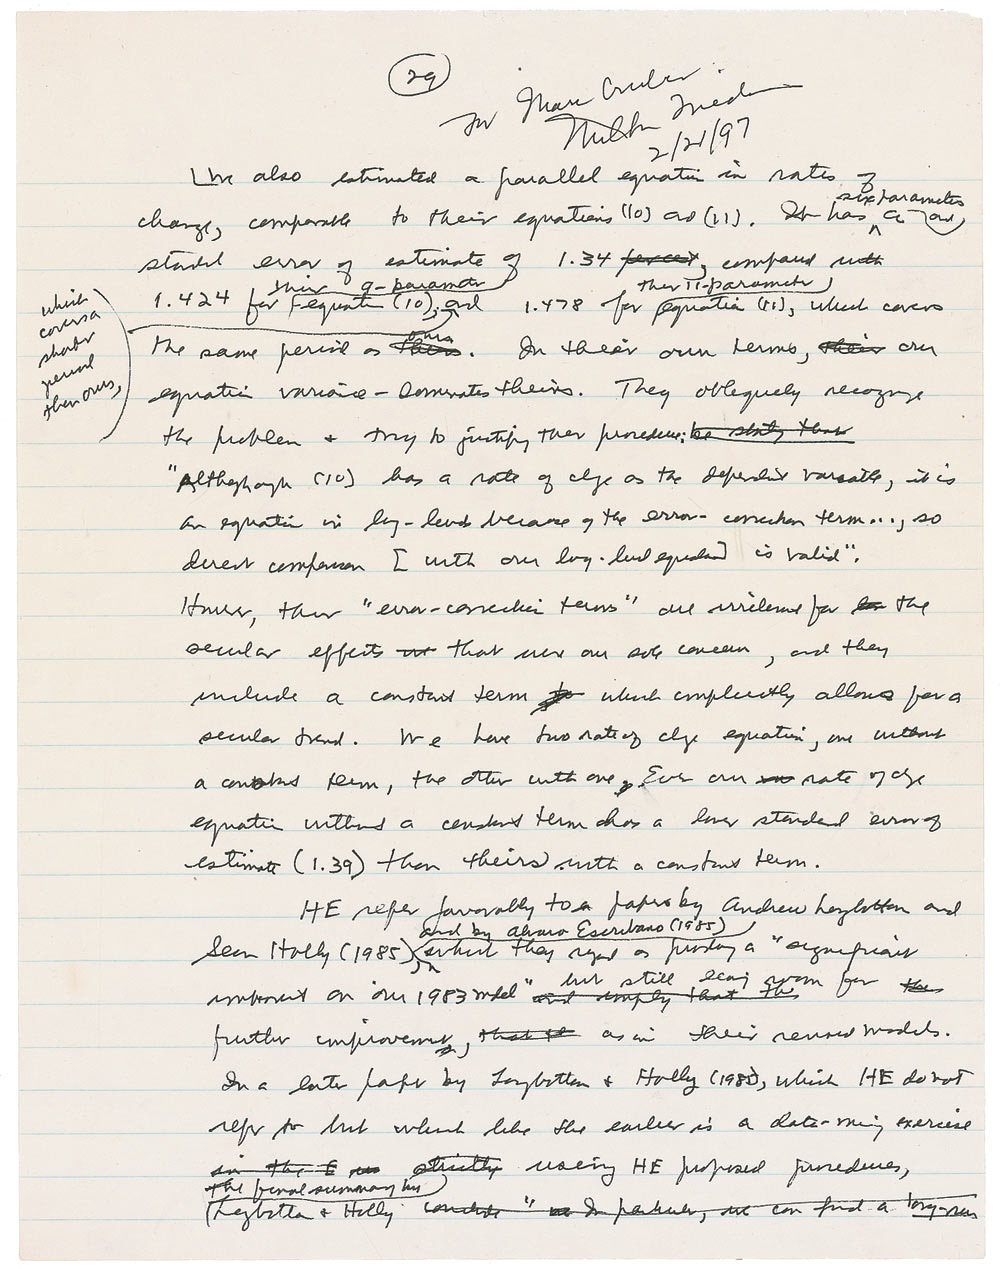 29
For Marc
Milton Friedman
2/21/97
We also estimated a parallel equation in rates of
six parameters
change, comparable to their equations (10) and (11). It has a and
standard error of estimate of 1.34 percent, compared with
their 9-parameter their 11-parameter
1.424 for equation (10), and 1.478 for equation (11), which covers
which
covers a
shorter
period
than ours,
ours
the same period as theirs. In their own terms, their our
equation variance-dominates theirs. They obliquely recognize
the problem & try to justify their procedure: be stating that
"Although (10) has a rate of chge as the dependent variable, it is
an equation in log-levels because of the error-correction term..., so
direct comparison [with our log-level equation] is valid".
However, their "error-correction terms" are irrelevant for the
secular effects that were our sole concern, and they
include a constant term to which implicitly allows for a
secular trend. We have two rate of chge equation, one without
a constant term, the other with one. Even our rate of chge
equation without a constant term has a lower standard error of
estimate (1.39) than theirs with a constant term.
HE refer favorably to a paper by Andrew Longbottom and
and by Alvaro Escribano (1985)
Sean Holly (1985), which they regard as providing a "significant
but still leaving room for
improvement on our 1983 model" and imply that the
further improvement, that as in their revised models.
In a later paper by Longbottom & Holly (1985), which HE do not
refer to but which like the earlier is a data-mining exercise
in the strictly using HE proposed procedures,
the final summary by
Longbottom & Holly conclude " In particular, we can find a long-run